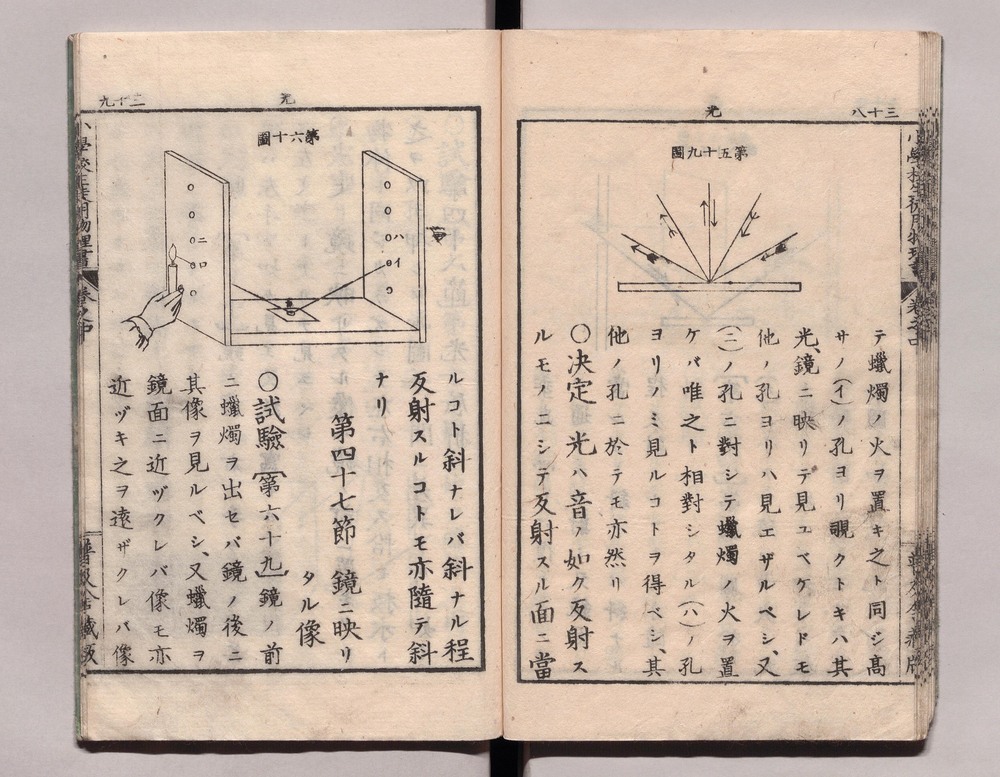 三十八
光
第五十九圖
テ蠟燭ノ火ヲ置キ之ト同ジ髙
サノ(イ)ノ孔ヨリ覗クトキハ其
光、鏡ニ映リテ見ユベケレドモ
他ノ孔ヨリハ見エザルベシ、又
(ニ)ノ孔ニ對シテ蠟燭ノ火ヲ置
ケバ唯之ト相對シタル(ハ)ノ孔
ヨリノミ見ルコトヲ得ベシ、其
他ノ孔ニ於テモ亦然リ
〇決定 光ハ音ノ如ク反射ス
ルモノニシテ反射スル面ニ當
三十九
光
小學校生徒用物理書
卷之中
第六十圖
ニ
ロ
ハ
イ
ルコト斜ナレバ斜ナル程
反射スルコトモ亦隨テ斜
ナリ
第四十七節 鏡ニ映リ
タル像
〇試驗(第六十九)鏡ノ前
ニ蠟燭ヲ出セバ鏡ノ後ニ
其像ヲ見ルベシ、又蠟燭ヲ
鏡面ニ近ヅクレバ像モ亦
近ヅキ之ヲ遠ザクレバ像